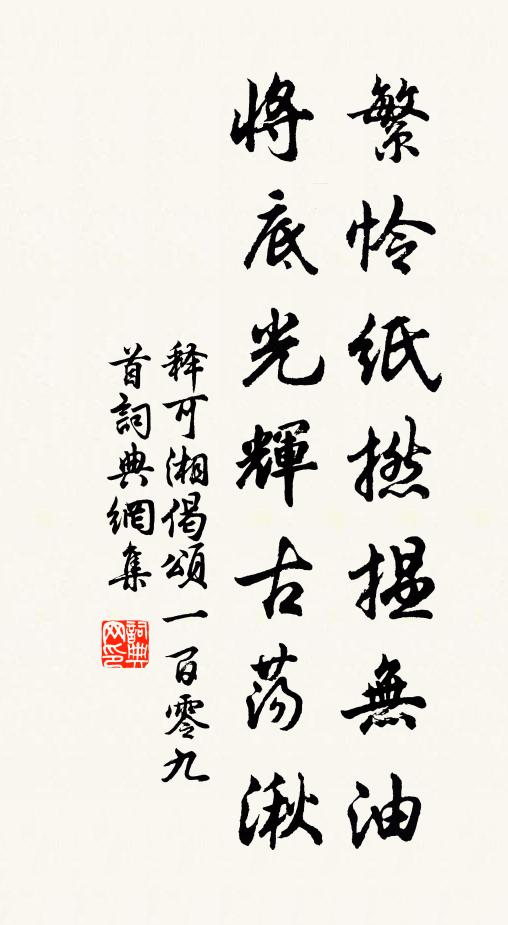 繁怜紙撚揾無油
將底光輝古蕩湫
释可湘偈頌一百零九
首詞典網集
詞典网印